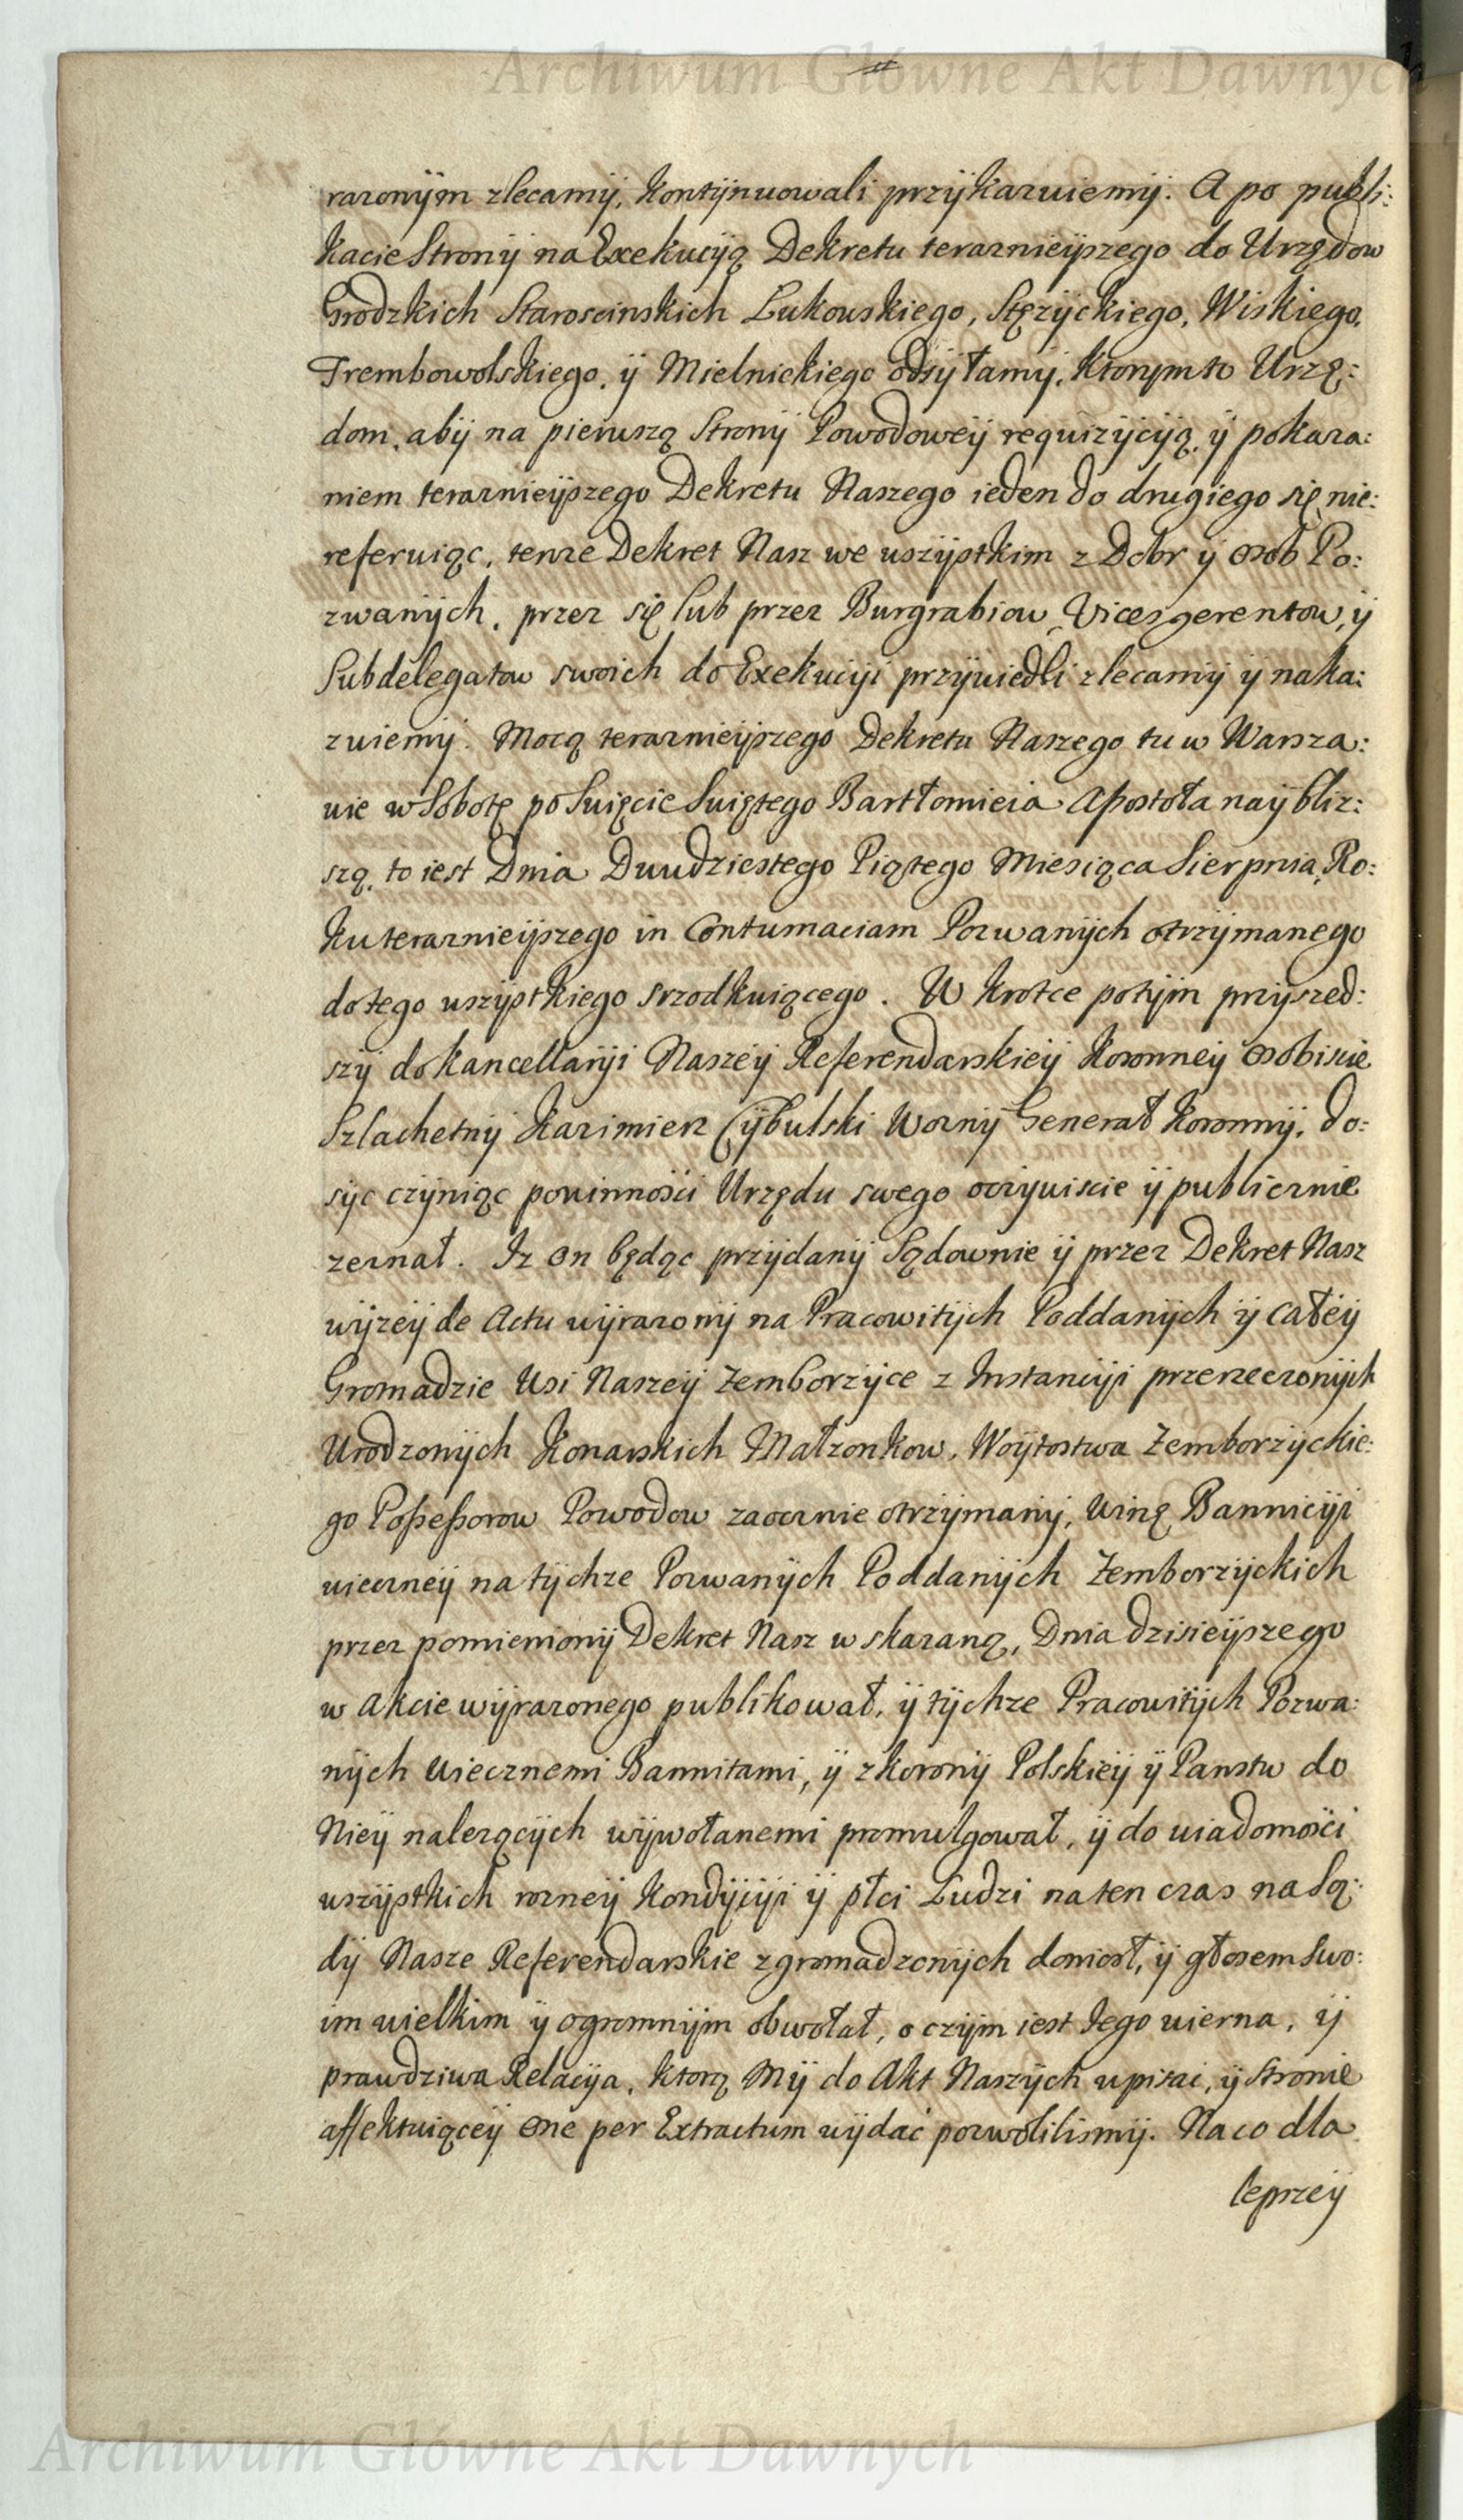 Archiwum Główne Akt Dawnych
razonÿm zlecamÿ, kontÿnuowali przÿkazuiemÿ. A po publi:
kacie Stronÿ na Exekucÿą Dekretu terazniejszego do Urzędow
Grodzkich Staroscinskich Lukowskiego, Stęzÿckiego, Wiskiego,
Trembowolskiego, ÿ Mielnickiego odsÿłamÿ, ktorÿmto Urzę:
dom, abÿ na pierwszą Stronÿ Powodoweÿ requizÿcÿą, ÿ pokaza:
niem teraznieÿszego Dekretu Naszego ieden do drugiego się nie:
referuiąc, tenze Dekret Nasz we wszÿstkim z Dobr ÿ osob Po:
zwanÿch, przez się lub przez Burgrabiow, Vicesgerentow, ÿ
Subdelegatow swoich do Exekucÿi przÿwiedli zlecamÿ ÿ naka:
zuiemÿ. Mocą teraznieÿszego Dekretu Naszego tu w Warsza:
wie w Sobotę po Swięcie Swiętego Bartłomieia Apostoła naÿbliz:
szą, to iest Dnia Dwudziestego Piątego Miesiąca Sierpnia, Ro:
ku teraznieÿszego in Contumaciam Pozwanÿch otrzÿmanego
do tego wszÿstkiego srzodkuiącego. W krotce potÿm przÿszed:
szÿ do kancellarÿi Naszeÿ Referendarskieÿ Koronneÿ osobiscie
Szlachetnÿ Kazimierz Cÿbulski Woznÿ Generał Koronnÿ, do:
sÿc czÿniąc powinnosci Urzędu swego oczÿwiscie ÿ publicznie
zeznał. Iz on będąc przÿdanÿ Sądownie ÿ przez Dekret Nasz
wÿzeÿ de Actu wÿrazonÿ na Pracowitÿch Poddanÿch ÿ całeÿ
Gromadzie Wsi Naszeÿ Zemborzÿce z Instancÿi przerzeczonÿch
Urodzonÿch Konarskich Małzonkow, Woÿtostwa Zemborzÿckie:
go Possessorow Powodow zaocznie otrzÿmanÿ, winę Bannicÿi
wieczneÿ na tÿchze Pozwanÿch Poddanÿch Zemborzÿckich
przez pomienionÿ Dekret Nasz wskazaną, Dnia dzisieÿszego
w Akcie wÿrazonego publikował, ÿ tÿchze Pracowitÿch Pozwa:
nÿch wiecznemi Bannitami, ÿ z koronÿ Polskieÿ ÿ Panstw do
Nieÿ nalezącÿch wÿwołanemi promulgował, ÿ do wiadomosci
wszÿstkich rozneÿ kondÿcÿi ÿ płci Ludzi na ten czas na Są:
dÿ Nasze Referendarskie zgromadzonÿch doniosł, ÿ głosem swo:
im wielkim ÿ ogromnÿm obwołał, o czÿm iest Jego wierna, ÿ
prawdziwa Relacÿa, ktorą Mÿ do Akt Naszÿch wpisać, ÿ Stronie
affektuiąceÿ one per Extractum wÿdać pozwolilismÿ. Na co dla
lepszeÿ
Archiwum Główne Akt Dawnych